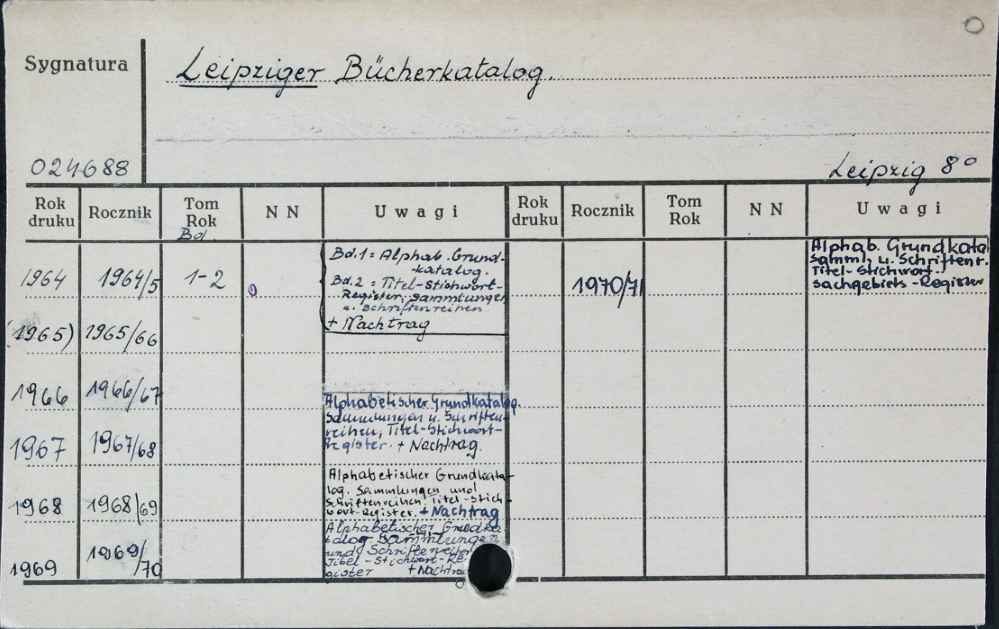 Sygnatura
Leipziger Bücherkatalog.
024688
Leipzig 8°
Rok druku Rocznik Tom Rok NN Uwagi Rok druku Rocznik Tom Rok NN Uwagi
Bd.
1964 1964/5 1-2
Bd. 1 = Alphab. Grund-
katalog.
Bd. 2 = Titel-Stichwort-
Register, Sammlungen
u. Schriftenreihen
+ Nachtrag
1970/71
Alphab. Grundkata
Samml. u. Schriftenr.
Titel-Stichwort-
Sachgebiets-Register
(1965) 1965/66
1966 1966/67
Alphabetischer Grundkatalog.
Sammlungen u. Schriften-
reihen, Titel-Stichwort-
Register. + Nachtrag.
1967 1967/68
Alphabetischer Grundkata-
log. Sammlungen und
Schriftenreihen. Titel-Stich-
wort-Register. + Nachtrag
1968 1968/69
Alphabetischer Grundka
talog Sammlungen
und Schriftenreihen
Titel-Stichwort-Re
gister + Nachtrag
1969 1969/70